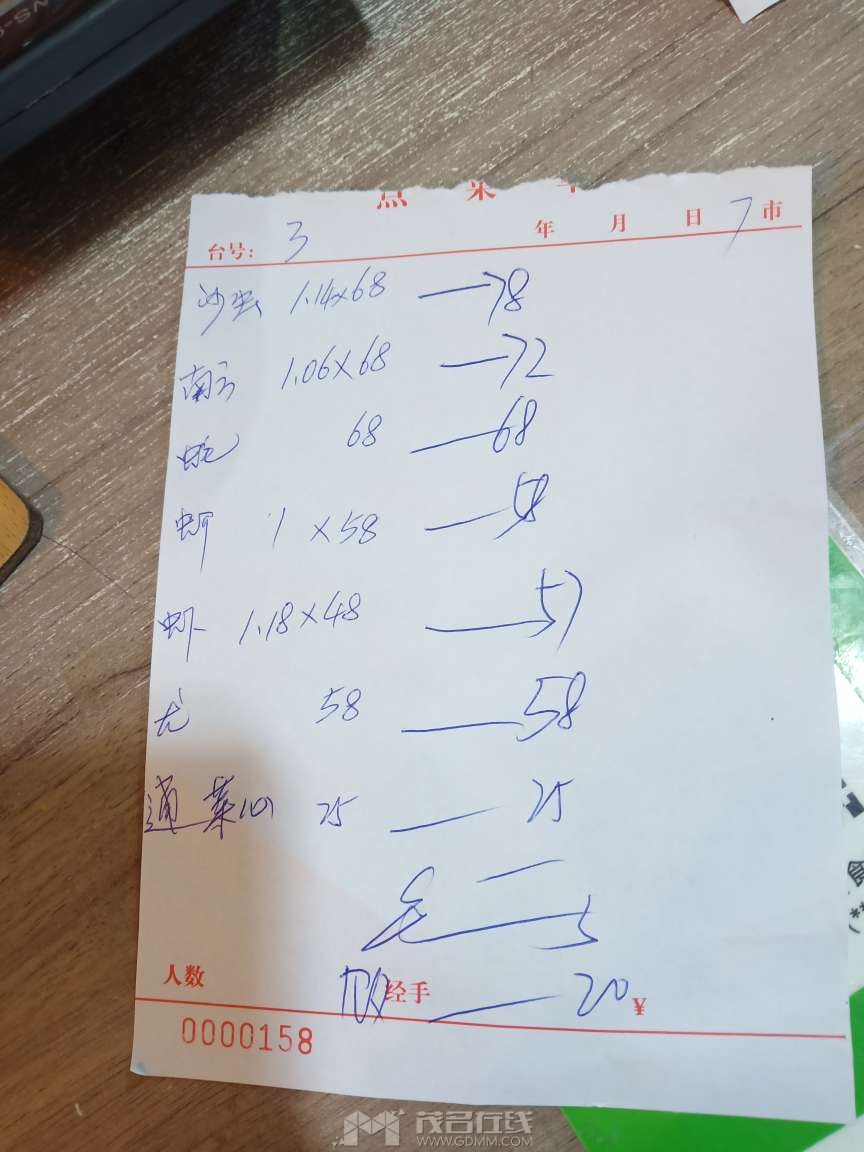 点菜单
台号: 3 年 月 日 7 市
沙虫 1.14×68 — 78
南方 1.06×68 — 72
68 — 68
蚵 1×58 — 58
虾 1.18×48 — 57
尤 58 — 58
通菜(例) 25 — 25
— 5
人数 经手 — 20 ¥
0000158
茂名在线
WWW.GDMM.COM